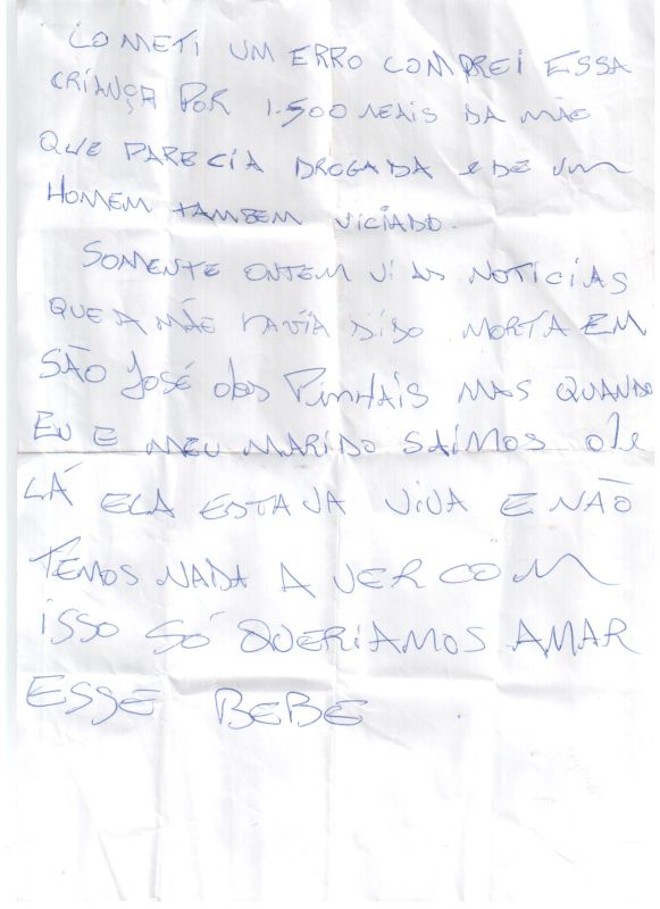 COMETI UM ERRO COMPREI ESSA
CRIANÇA POR 1.500 REAIS DA MÃE
QUE PARECIA DROGADA E DE UM
HOMEM TAMBEM VICIADO.
SOMENTE ONTEM VI AS NOTICIAS
QUE A MÃE HAVIA SIDO MORTA EM
SÃO JOSÉ dos PINHAIS MAS QUANDO
EU E MEU MARIDO SAIMOS de
LÁ ELA ESTAVA VIVA E NÃO
TEMOS NADA A VER COM
ISSO SÓ QUERIAMOS AMAR
ESSE BEBE